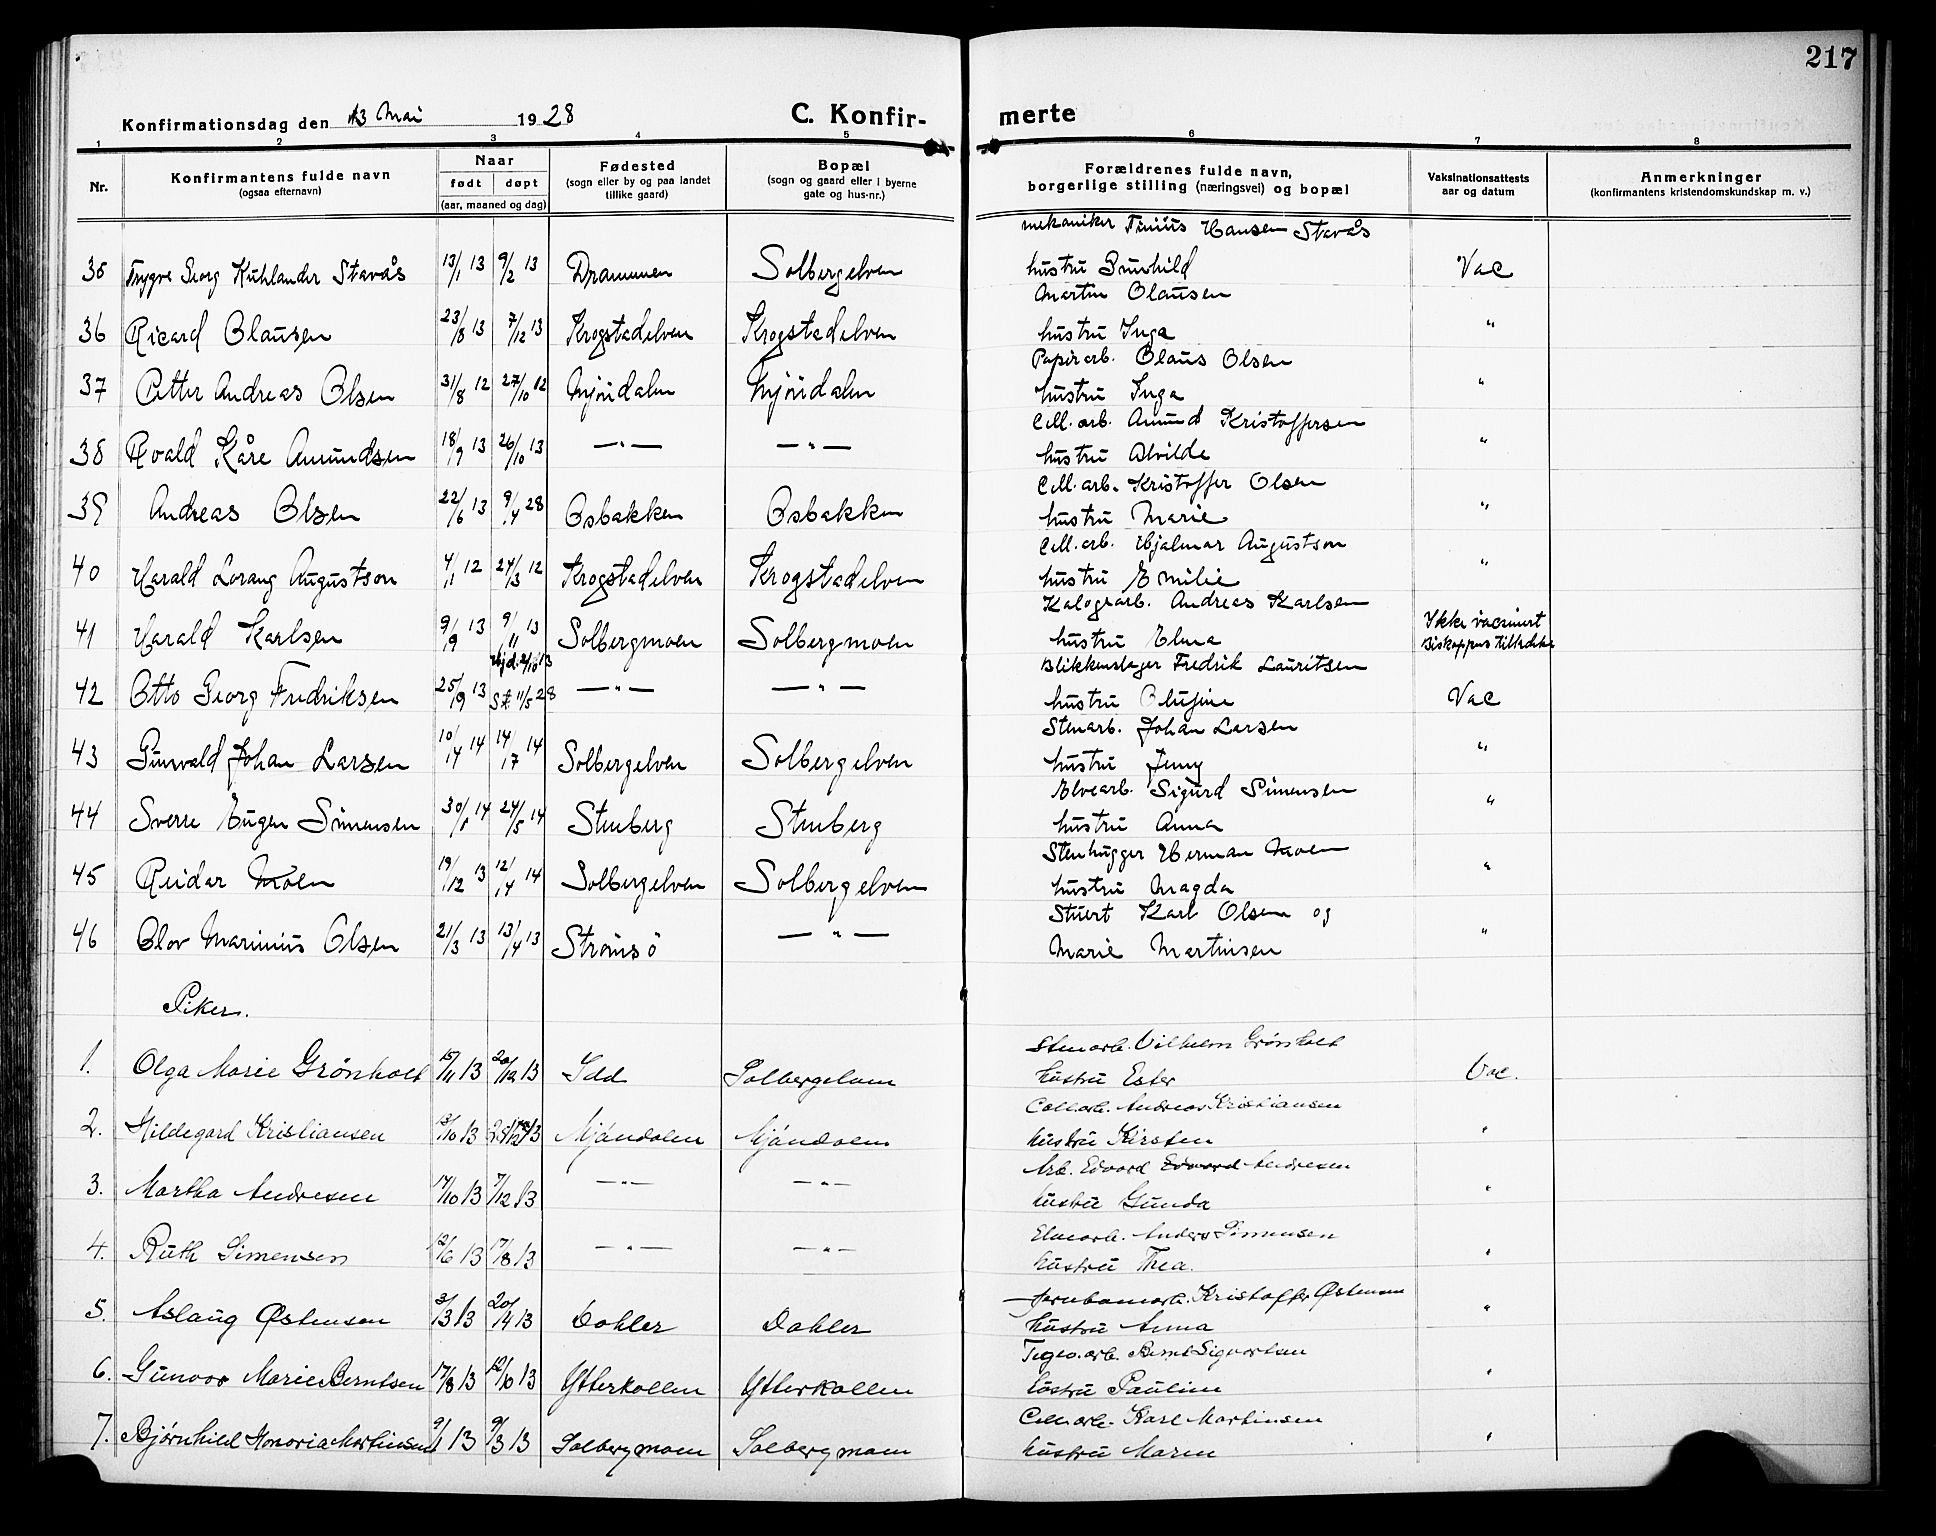 217
Konfirmationsdag den 13 Mai 1928 C. Konfirmerte
1 2 3 4 5 6 7 8
Nr. Konfirmantens fulde navn (ogsaa efternavn) Naar født døpt (aar, maaned og dag) Fødested (sogn eller by og paa landet tillike gaard) Bopæl (sogn og gaard eller i byerne gate og hus-nr.) Forældrenes fulde navn, borgerlige stilling (næringsvei) og bopæl Vaksinationsattests aar og datum Anmerkninger (konfirmantens kristendomskundskap m. v.)
mekaniker Tinius Hansen Stavås
35 Trygve Georg Kuhlander Stavås 13/1 13 9/2 13 Drammen Solbergelven hustru Gunhild Vac
Martin Olausen
36 Ricard Olausen 23/8 13 7/12 13 Krogstadelven Krogstadelven hustru Inga "
Papirarb. Olaus Olsen
37 Petter Andreas Olsen 31/8 12 27/10 12 Mjøndalen Mjøndalen hustru Inga "
Cell. arb. Amund Kristoffersen
38 Roald Kåre Amundsen 18/9 13 26/10 13 —"— —"— hustru Alvilde "
Cell. arb. Kristoffer Olsen
39 Andreas Olsen 22/6 13 9/4 28 Åsbakken Åsbakken hustru Marie "
Cell. arb. Hjalmar Augustson
40 Harald Lorang Augustson 4/1 12 24/3 12 Krogstadelven Krogstadelven hustru Emilie "
Kalograrb. Andreas Karlsen
41 Harald Karlsen 9/9 13 9/11 13 Solbergmoen Solbergmoen hustru Elma Ikke vacsinert Biskoppens tilladelse
Blikkenslager Fredrik Lauritsen
42 Otto Georg Fredriksen 25/9 13 Hjd. 2/10 13 St. 11/5 28 —"— —"— hustru Olufine Vac
Stenarb. Johan Larsen
43 Gunvald Johan Larsen 10/4 14 14/7 14 Solbergelven Solbergelven hustru Jenny "
Elvearb. Sigurd Simensen
44 Sverre Eugen Simensen 30/1 14 24/5 14 Stenberg Stenberg hustru Anna "
Stenhugger Herman Moen
45 Reidar Moen 19/12 13 12/4 14 Solbergelven Solbergelven hustru Magda "
Stuert Karl Olsen og
46 Olov Marinius Olsen 21/3 13 13/4 13 Strømsö —"— Marie Martinsen "
Piker.
Stenarb. Vilhelm Grönholt
1. Olga Marie Grönholt 15/11 13 20/12 13 Idd Solbergelven hustru Ester Vac.
Cellarb. Andreas Kristiansen
2. Hildegard Kristiansen 13/10 13 25/12 13 Mjøndalen Mjøndalen hustru Kirsten "
Arb. Edvard Edvard Andresen
3. Martha Andresen 17/10 13 7/12 13 —"— —"— hustru Gunda "
Elvearb. Anders Simensen
4. Ruth Simensen 12/6 13 17/8 13 —"— —"— hustru Thea. "
Jernbanearb. Kristoffer Østensen
5. Aslaug Østensen 3/3 13 20/4 13 Dahler Dahler hustru Anna "
Teglv.arb. Bernt Sigvartsen
6. Gunvor Marie Berntsen 17/8 13 12/10 13 Ytterkollen Ytterkollen hustru Pauline "
Cellarb. Karl Martinsen
7. Bjørnhild Honoria Martinsen 9/1 13 9/3 13 Solbergmoen Solbergmoen hustru Maren "